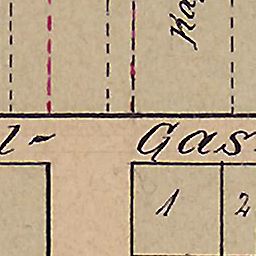 Ka
l- Gas
1 2